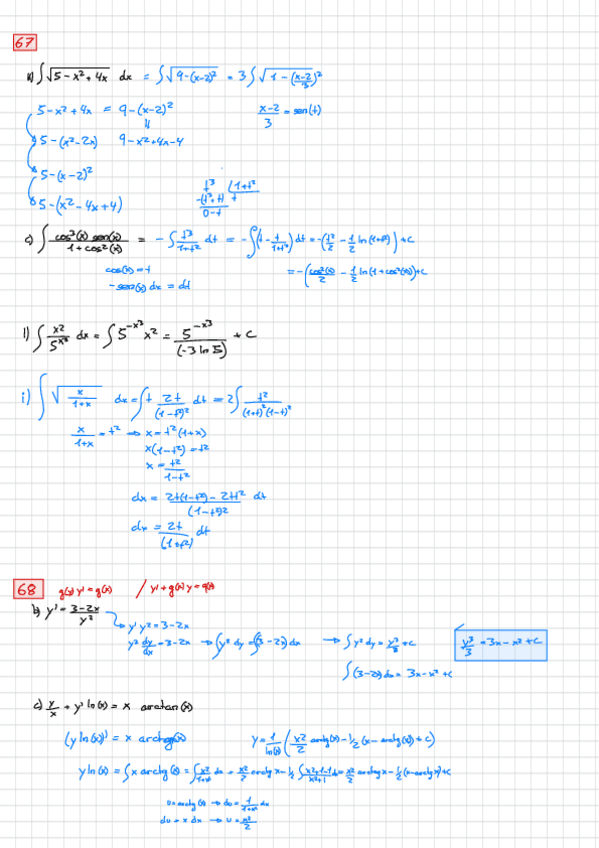 67
∫√(5-x²+4x) dx = ∫√(9-(x-2)²) = 3∫√(1-((x-2)/3)²)
5-x²+4x = 9-(x-2)²
(x-2)/3 = sen(t)
5-(x²-2x) 9-x²+4x-4
5-(x-2)²
5-(x²-4x+4)
t³ | 1+t²
-(t³+t) t
0-t
c) ∫ cos³(x) sen(x) / (1+cos²(x)) = -∫ t³/(1+t²) dt = -∫(t - t/(1+t²)) dt = -(t²/2 - 1/2 ln(1+t²)) + C
cos(x) = t
-sen(x) dx = dt
= -(cos²(x)/2 - 1/2 ln(1+cos²(x))) + C
l) ∫ x2/5^x³ dx = ∫ 5^-x³ x² = 5^-x³/(-3 ln 5) + C
i) ∫ √(x/(1+x)) dx = ∫ t 2t/(1-t²)² dt = 2∫ t²/((1+t)²(1-t)²)
x/(1+x) = t² → x = t²(1+x)
x(1-t²) = t²
x = t²/(1-t²)
dx = (2t(1-t²) - 2t t²)/(1-t²)² dt
dx = 2t/(1+t²) dt
68 g(y) y' = g(x) / y' + g(x) y = q(x)
b) y' = (3-2x)/y²
y' y² = 3-2x
y² dy/dx = 3-2x → ∫y² dy = ∫(3-2x) dx → ∫y² dy = y³/3 + C
y³/3 = 3x - x² + C
∫(3-2x) dx = 3x - x² + C
c) y/x + y' ln(x) = x arctan(x)
(y ln(x))' = x arctg(x) y = 1/ln(x) (x²/2 arctg(x) - 1/2 (x - arctg(x)) + C)
y ln(x) = ∫ x arctg(x) = ∫ x²/(1+x²) dx = x²/2 arctg x - 1/2 ∫ (x²+1-1)/(x²+1) dx = x²/2 arctg x - 1/2 (x - arctg x) + C
u = arctg(x) → du = 1/(1+x²) dx
dv = x dx → v = x²/2